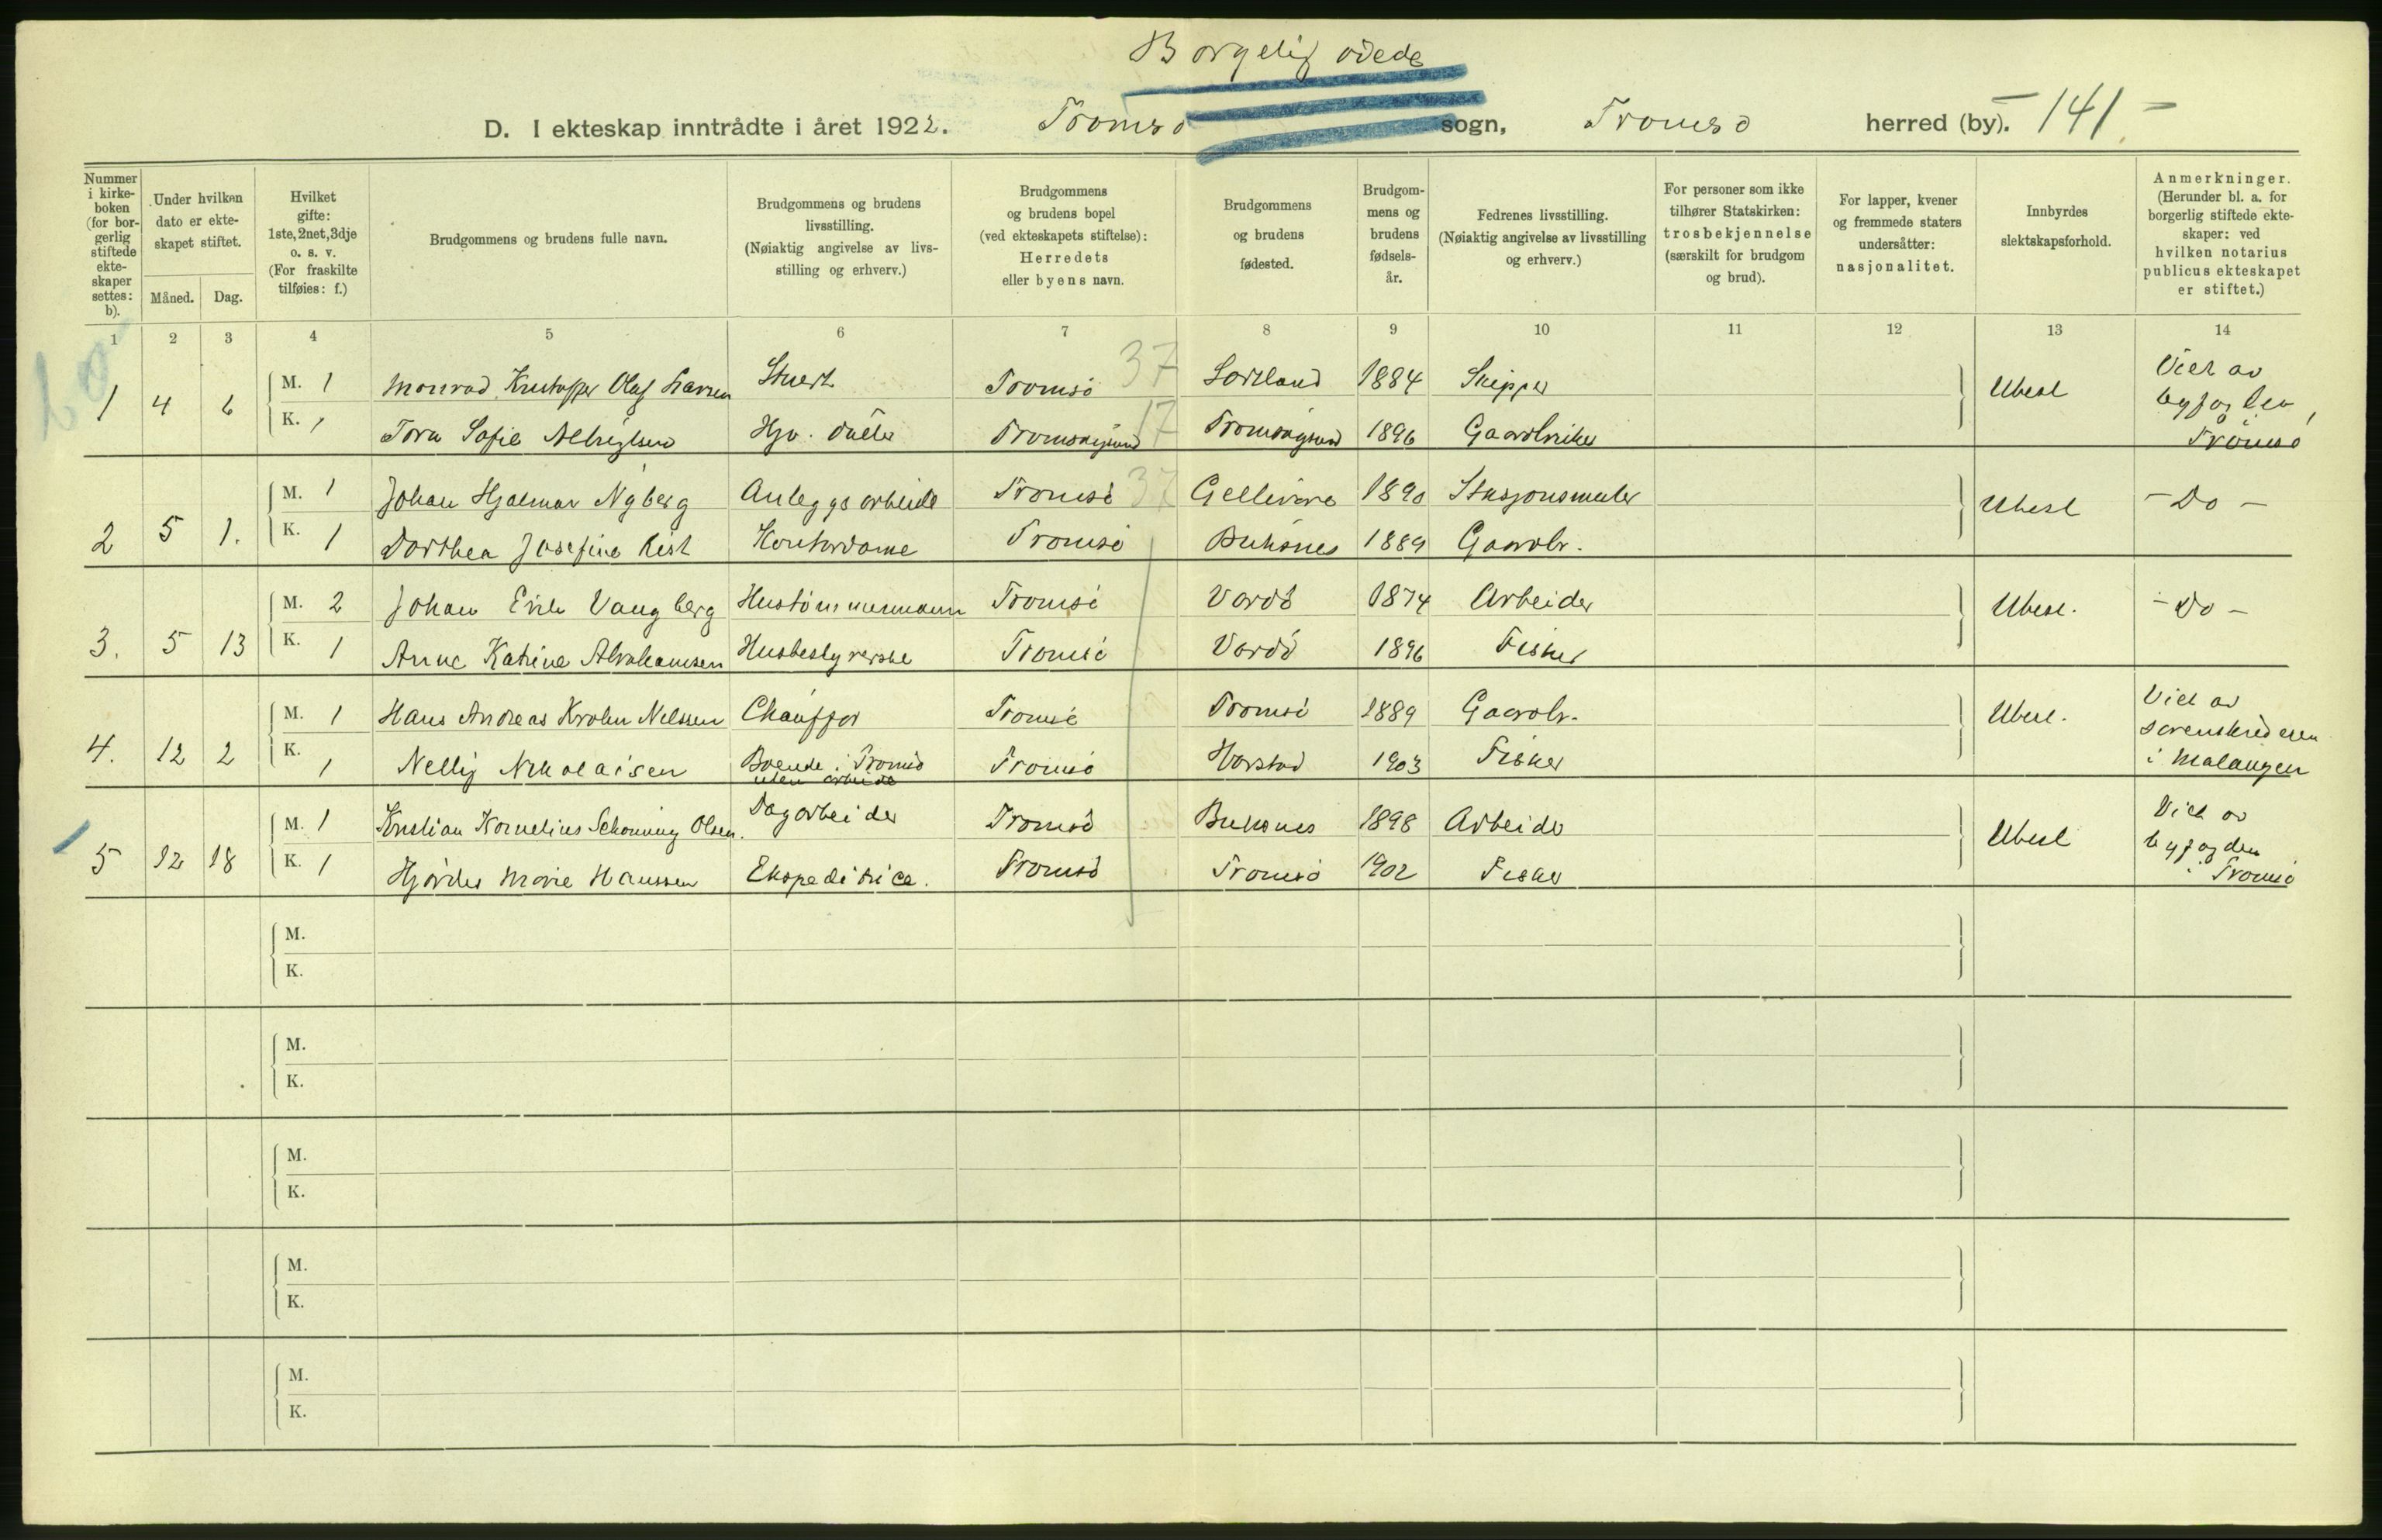 Borgelig viede
D. I ekteskap inntrådte i året 1922. Tromsø sogn, Tromsø herred (by). - 141 -
Nummer i kirke-boken (for bor-gerlig stiftede ekte-skaper settes: b).
Under hvilken dato er ekte-skapet stiftet.
Måned. Dag.
Hvilket gifte: 1ste, 2net, 3dje o. s. v. (For fraskilte tilføies: f.)
Brudgommens og brudens fulle navn.
Brudgommens og brudens livsstilling. (Nøiaktig angivelse av livs-stilling og erhverv.)
Brudgommens og brudens bopel (ved ekteskapets stiftelse): Herredets eller byens navn.
Brudgommens og brudens fødested.
Brudgom-mens og brudens fødsels-år.
Fedrenes livsstilling. (Nøiaktig angivelse av livsstilling og erhverv.)
For personer som ikke tilhører Statskirken: trosbekjennelse (særskilt for brudgom og brud).
For lapper, kvener og fremmede staters undersåtter: nasjonalitet.
Innbyrdes slektskapsforhold.
Anmerkninger. (Herunder bl. a. for borgerlig stiftede ekte-skaper: ved hvilken notarius publicus ekteskapet er stiftet.)
1 2 3 4 5 6 7 8 9 10 11 12 13 14
1 4 6 M. 1 Monrad Kristoffer Olaf Larsen Stuert Tromsø 37 Sortland 1884 Skipper Ubesl Viet av byfogden, Tromsø
K. 1 Tora Sofie Albrigtsen Hjv. datter Tromsøysund 17 Tromsøysund 1896 Gaardbruker
2 5 1. M. 1 Johan Hjalmar Nyberg Anleggsarbeide Tromsø 37 Gellivare 1890 Stasjonsmester Ubesl - Do -
K. 1 Dorthea Josefine Rist Kontordame Tromsø Buksnes 1889 Gaardbr.
3. 5 13 M. 2 Johan Erik Vangberg Hustømmermann Tromsø Vardø 1874 Arbeider Ubesl. - Do -
K. 1 Anne Katrine Abrahamsen Husbestyrerske Tromsø Vardø 1896 Fisker
4. 12 2 M. 1 Hans Andreas Krohn Nilssen Chauffør Tromsø Tromsø 1889 Gaardbr. Ubesl. Viet av sorenskriveren i Malangen
K. 1 Nelly Nikolaisen Boende i Tromsø uten arbeide Tromsø Harstad 1903 Fisker
5 12 18 M. 1 Kristian Kornelius Schonning Olsen. Dagarbeider Tromsø Buksnes 1898 Arbeide Ubesl Viet av byfogden i Tromsø
K. 1 Hjørdis Marie Hanssen Ekspeditrice. Tromsø Tromsø 1902 Fisker
M.
K.
M.
K.
M.
K.
M.
K.
M.
K.